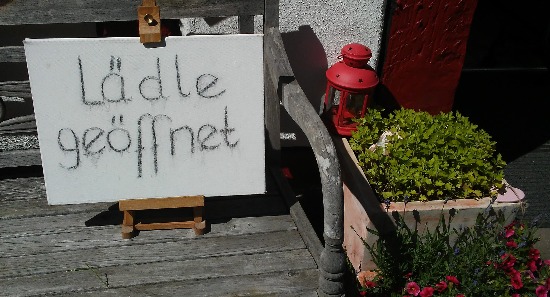 Lädle
geöffnet